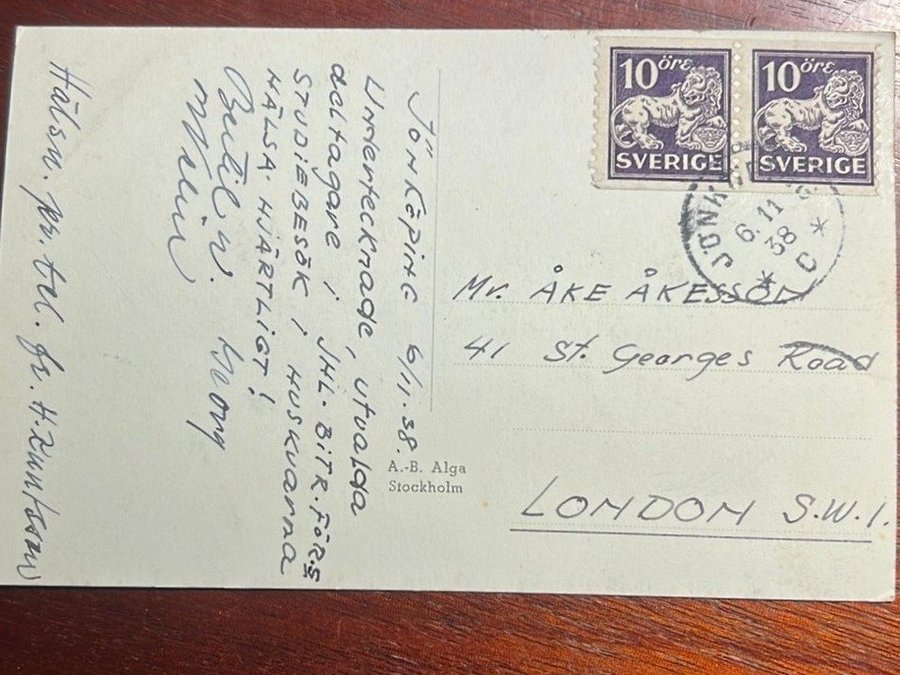 JÖNKÖPING 6/11.38.
Undertecknade, utvalda
deltagare i JHL. BITR. FÖR:S
STUDIEBESÖK I HUSKVARNA
HÄLSA HJÄRTLIGT!
Bertil W. Georg
Hälsn. pr. tel. fr. H. Knutsson
10 öre
SVERIGE
10 öre
SVERIGE
JÖNK
6.11
38
* C *
Mr. ÅKE ÅKESSON
41 St. Georges Road
LONDON S.W.1.
A.-B. Alga
Stockholm